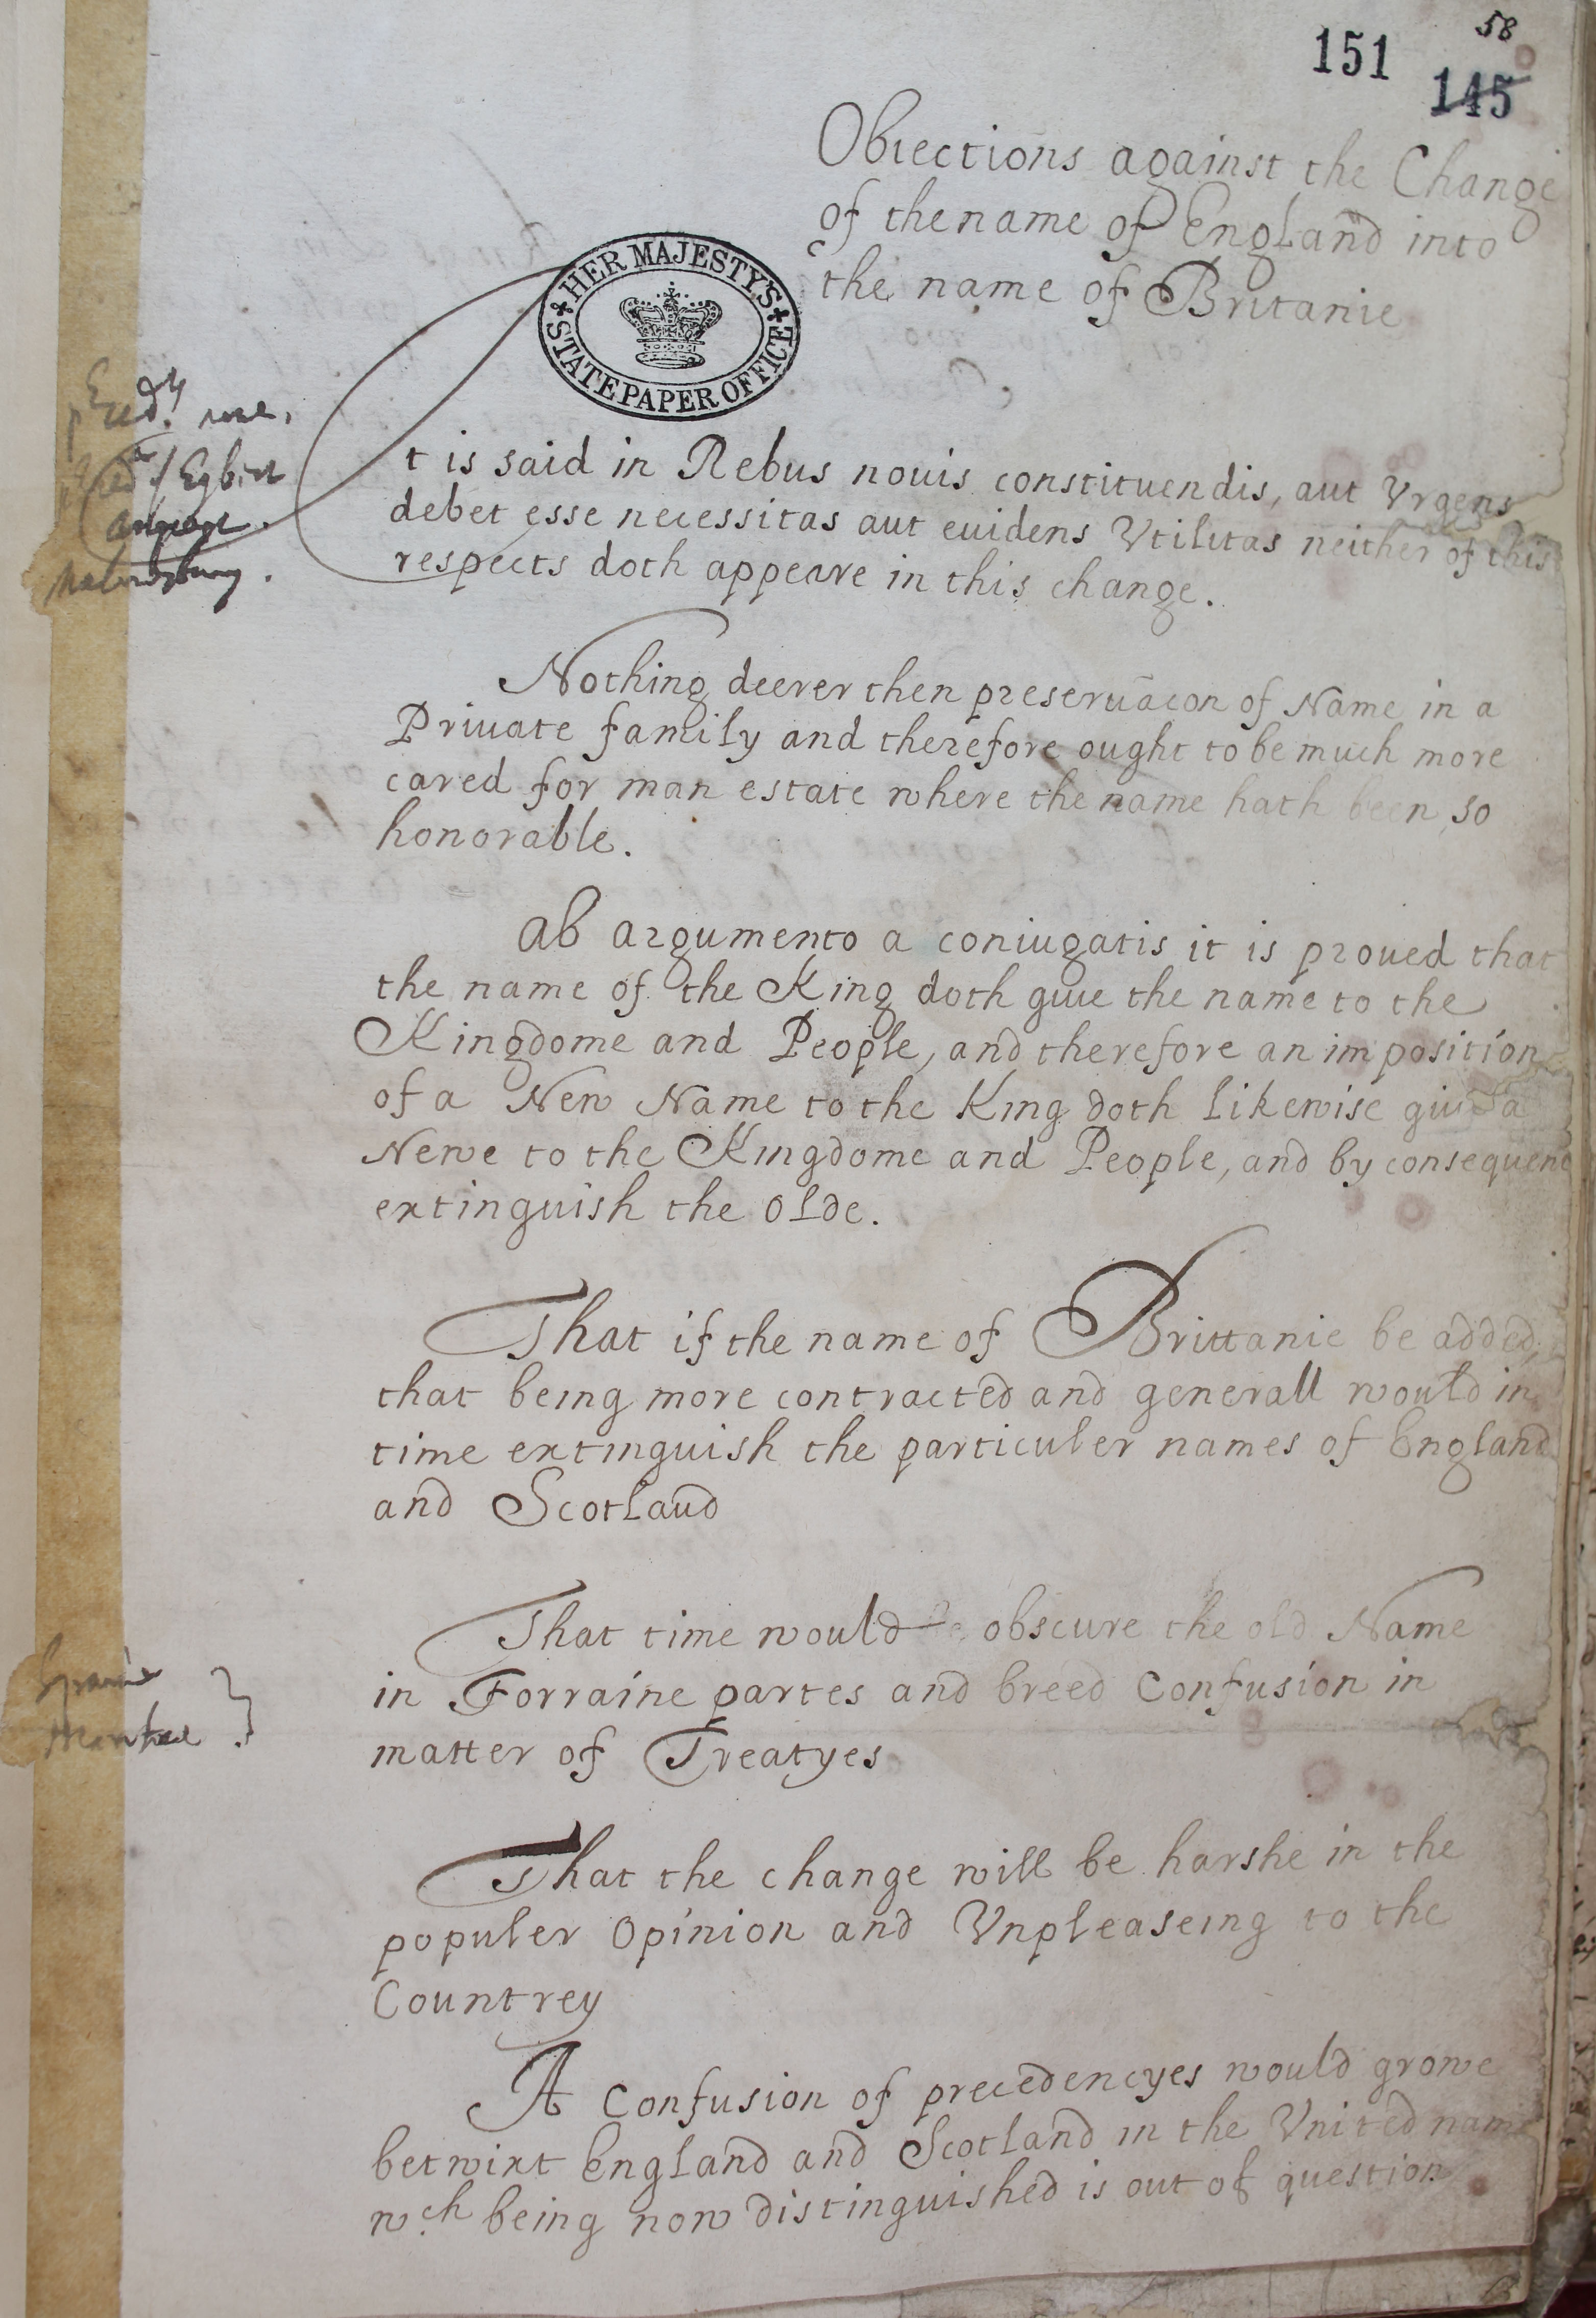 58
151
145
Obiections against the Change
of the name of England into
the name of Britanie
HER MAJESTY'S
STATE PAPER OFFICE
Egbirt
Malmsbury.
It is said in Rebus nouis constituendis, aut Vrgens
debet esse necessitas aut euidens Vtilitas neither of this
respects doth appeare in this change.
Nothing deerer then preseruacon of Name in a
Priuate family and therefore ought to be much more
cared for in an estate where the name hath been so
honorable.
Ab argumento a coniugatis it is proued that
the name of the King doth giue the name to the
Kingdome and People, and therefore an imposition
of a New Name to the King doth likewise giue a
Newe to the Kingdome and People, and by consequenc
extinguish the olde.
That if the name of Brittanie be added,
that being more contracted and generall would in
time extinguish the particuler names of England
and Scotland
That time would obscure the old Name
in Forraine partes and breed Confusion in
matter of Treatyes
That the change will be harshe in the
populer Opinion and Vnpleaseing to the
Countrey
A Confusion of precedencyes would growe
betwixt England and Scotland in the Vnited name
wch being now distinguished is out of question